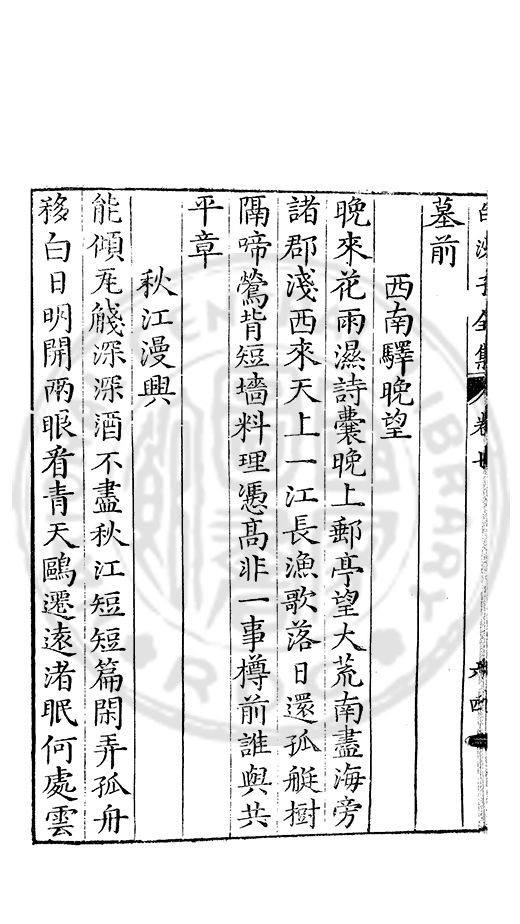 白沙子全集 卷
墓前
西南驛晚望
晚來花雨濕詩囊晚上郵亭望大荒南盡海旁
諸郡淺西來天上一江長漁歌落日還孤艇樹
隔啼鶯背短墻料理憑高非一事樽前誰與共
平章
秋江漫興
能傾瓦深深酒不盡秋江短短篇閑弄孤舟
移白日明開兩眼看青天鷗遷遠渚眠何處雲